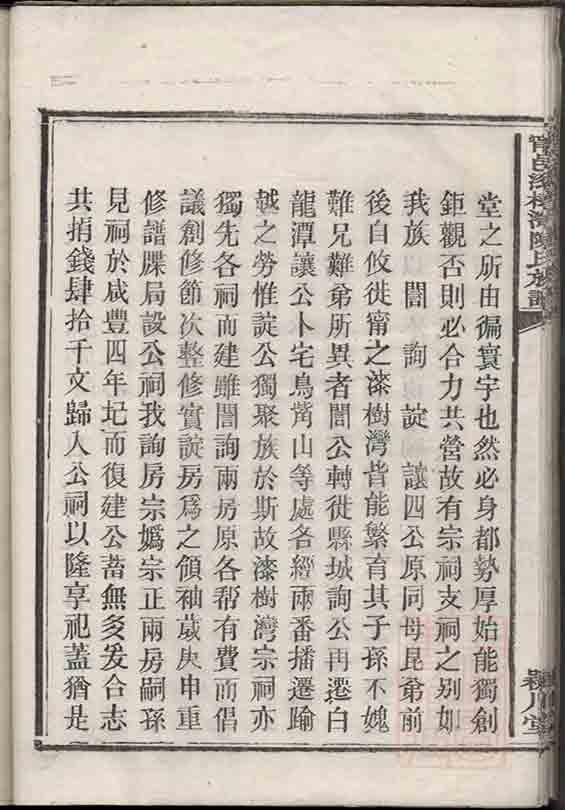 堂之所由徧寰宇也然必身都勢厚始能獨創
鉅觀否則必合力共營故有宗祠支祠之别如
我族　誾　詢　諚　讓四公原同母昆弟前
後自攸徙甯之漆樹灣皆能繁育其子孫不媿
難兄難弟所異者誾公轉徙縣城詢公再遷白
龍潭讓公卜宅鳥觜山等處各經兩番播遷踰
越之勞惟諚公獨聚族於斯故漆樹灣宗祠亦
獨先各祠而建雖誾詢兩房原各帮有費而倡
議創修節次整修實諚房爲之領袖歲庚申重
修譜牒局設公祠我詢房宗嬀宗正兩房嗣孫
見祠於咸豐四年圮而復建公蓄無多爰合志
共捐錢肆拾千文歸入公祠以隆享祀蓋猶是
甯邑漆樹灣陳氏族譜
潁川堂